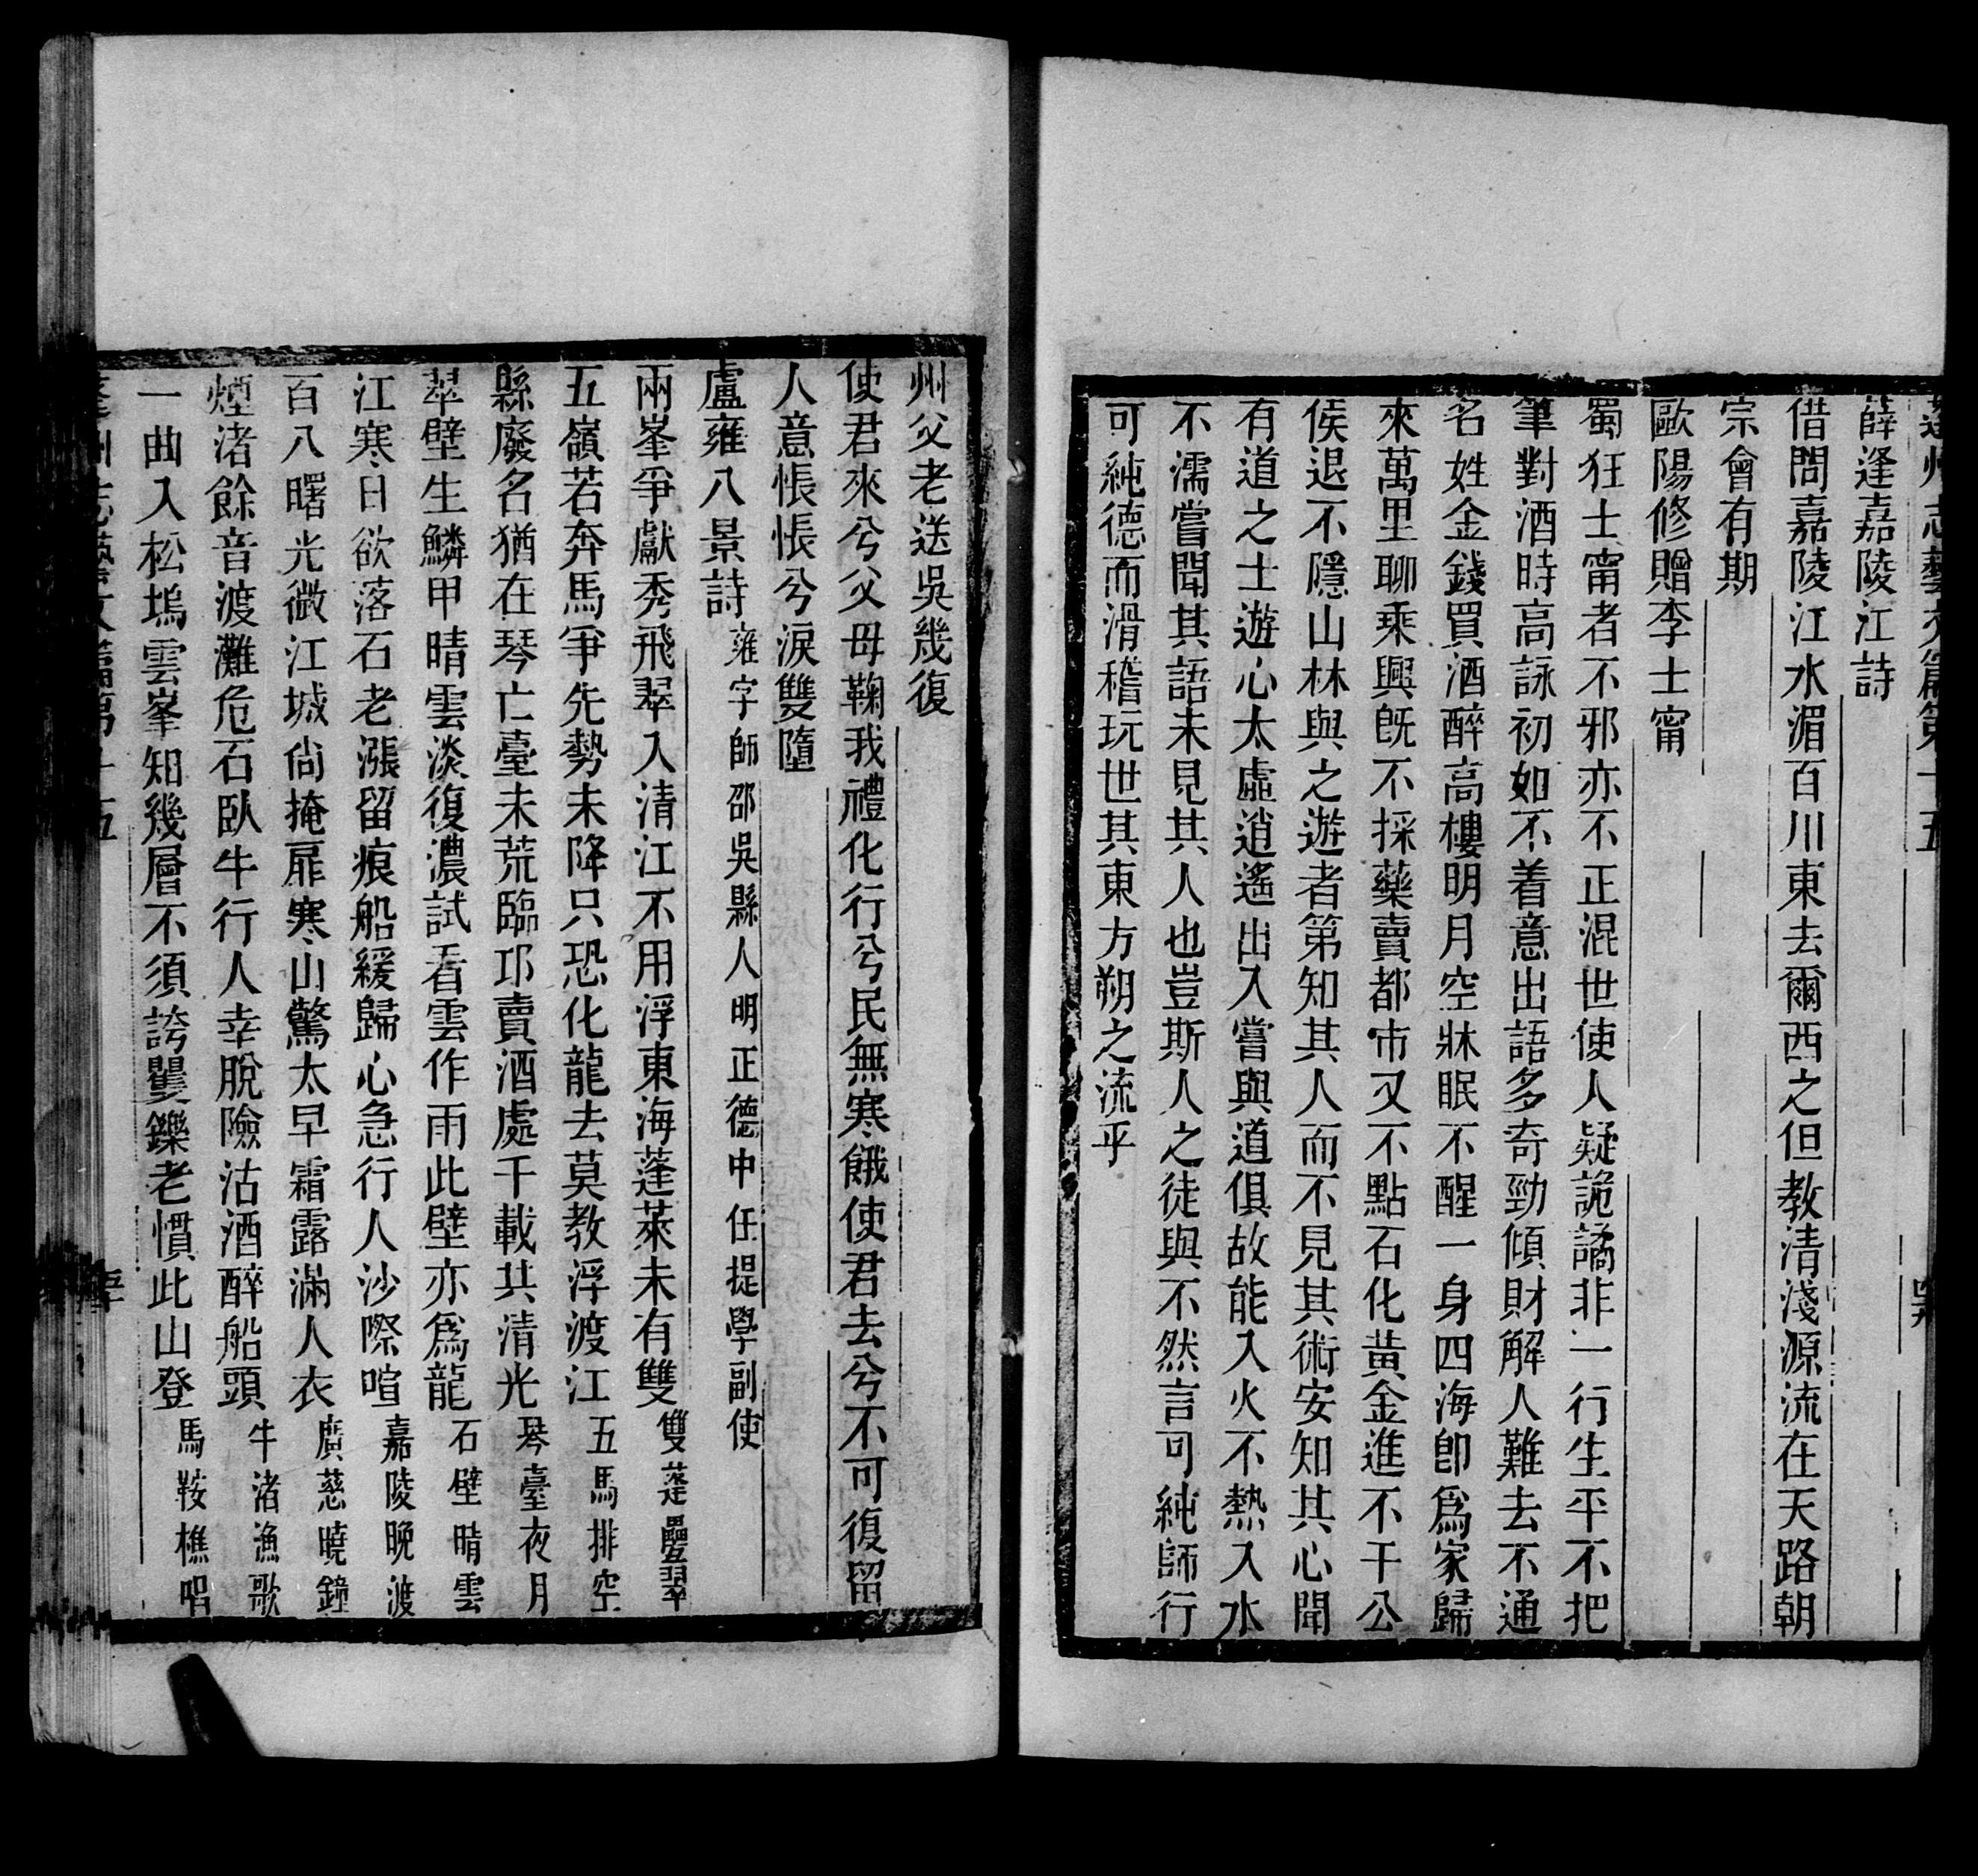 蓬州志藝文篇第十五
薛逢嘉陵江詩
借問嘉陵江水湄百川東去爾西之但教清淺源流在天路朝
宗會有期
歐陽修贈李士甯
蜀狂士甯者不邪亦不正混世使人疑詭譎非一行生平不把
筆對酒時高詠初如不着意出語多奇勁傾財解人難去不通
名姓金錢買酒醉高樓明月空牀眠不醒一身四海卽爲家歸
來萬里聊乘興旣不採藥賣都市又不點石化黃金進不干公
侯退不隱山林與之遊者第知其人而不見其術安知其心聞
有道之士遊心太虛逍遙出入嘗與道俱故能入火不熱入水
不濡嘗聞其語未見其人也豈斯人之徒與不然言可純師行
可純德而滑稽玩世其東方朔之流乎
州父老送吳幾復
使君來兮父母鞠我禮化行兮民無寒餓使君去兮不可復留
人意悵悵兮淚雙墮
盧雍八景詩雍字師邵吳縣人明正德中任提學副使
兩峯爭獻秀飛翠入清江不用浮東海蓬萊未有雙雙蓬疊翠
五嶺若奔馬爭先勢未降只恐化龍去莫教浮渡江五馬排空
縣廢名猶在琴亡臺未荒臨邛賣酒處千載共清光琴臺夜月
翠壁生鱗甲晴雲淡復濃試看雲作雨此壁亦爲龍石壁晴雲
江寒日欲落石老漲留痕船緩歸心急行人沙際喧嘉陵晚渡
百八曙光微江城尙掩扉寒山驚太早霜露滿人衣廣慈曉鐘
煙渚餘音渡灘危石臥牛行人幸脫險沽酒醉船頭牛渚漁歌
一曲入松塢雲峯知幾層不須誇矍鑠老慣此山登馬鞍樵唱
蓬州志藝文篇第十五